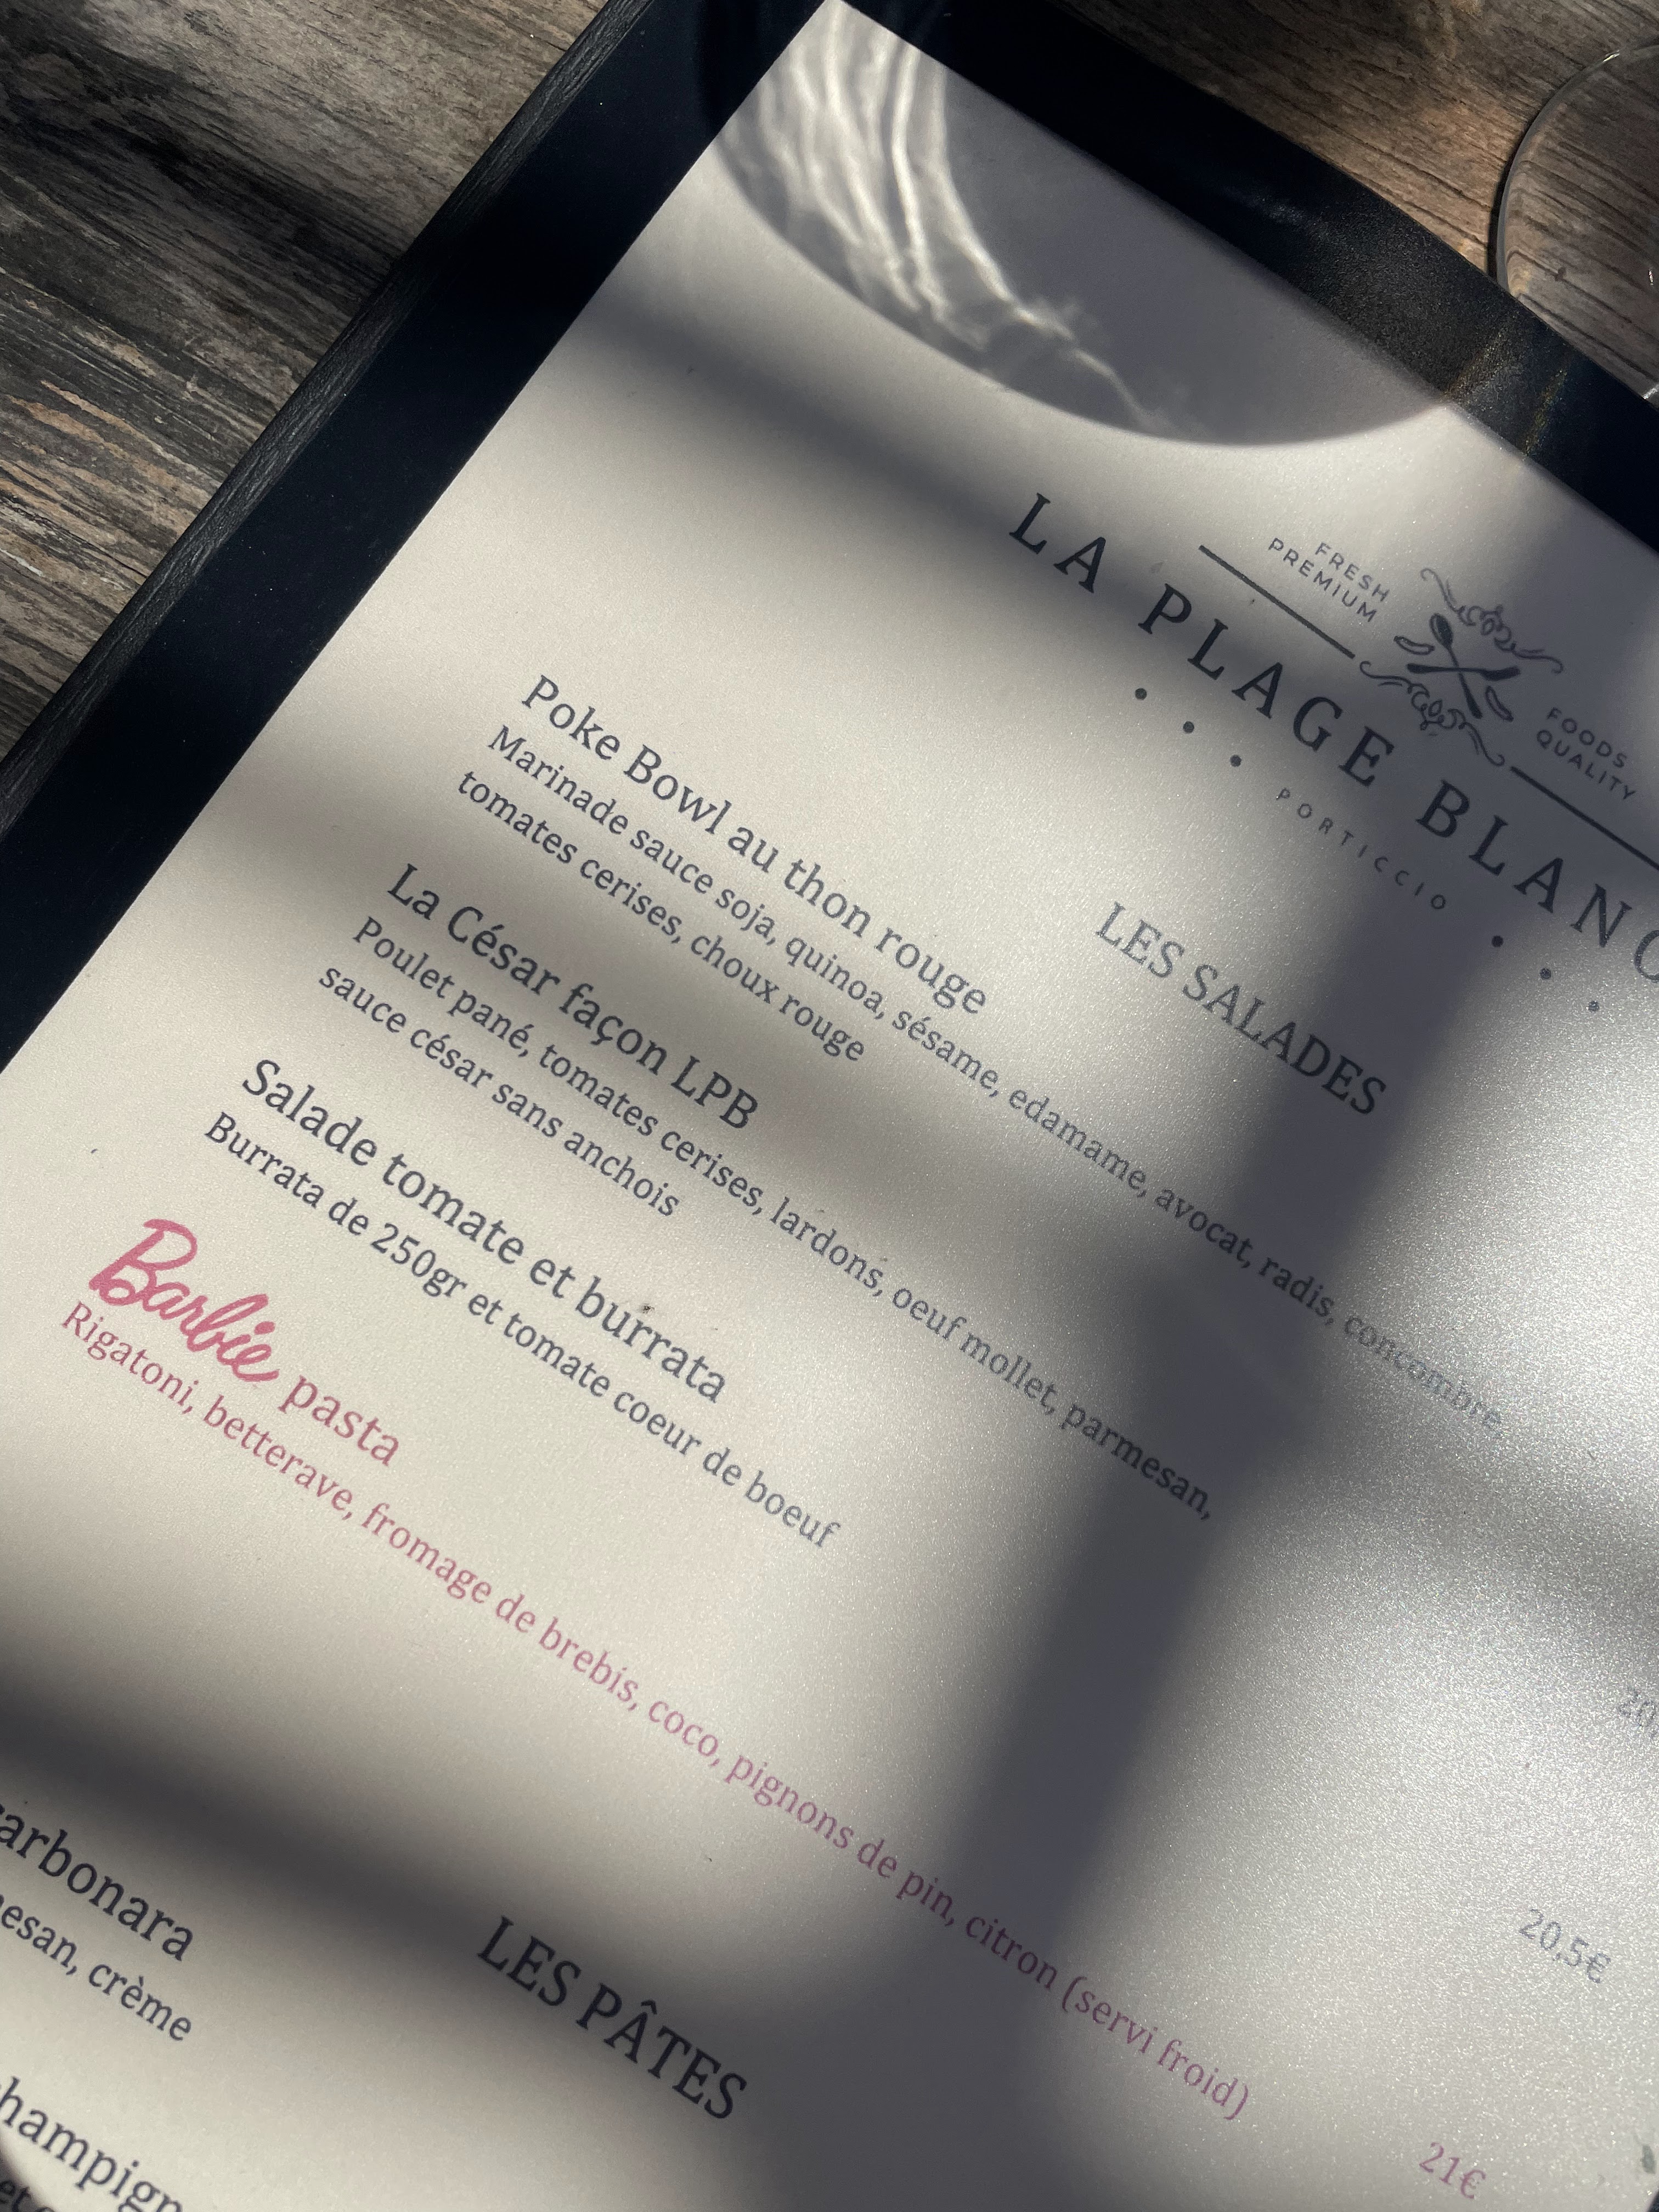 FRESH
PREMIUM
FOODS
QUALITY
LA PLAGE
PORTICCIO
LES SALADES
Poke Bowl au thon rouge
Marinade sauce soja, quinoa, sésame, edamame, avocat, radis, concombre,
tomates cerises, choux rouge
La César façon LPB
Poulet pané, tomates cerises, lardons, oeuf mollet, parmesan,
sauce césar sans anchois
Salade tomate et burrata
20,5€
Burrata de 250gr et tomate coeur de boeuf
Barbie pasta
21€
Rigatoni, betterave, fromage de brebis, coco, pignons de pin, citron (servi froid)
LES PÂTES
crème